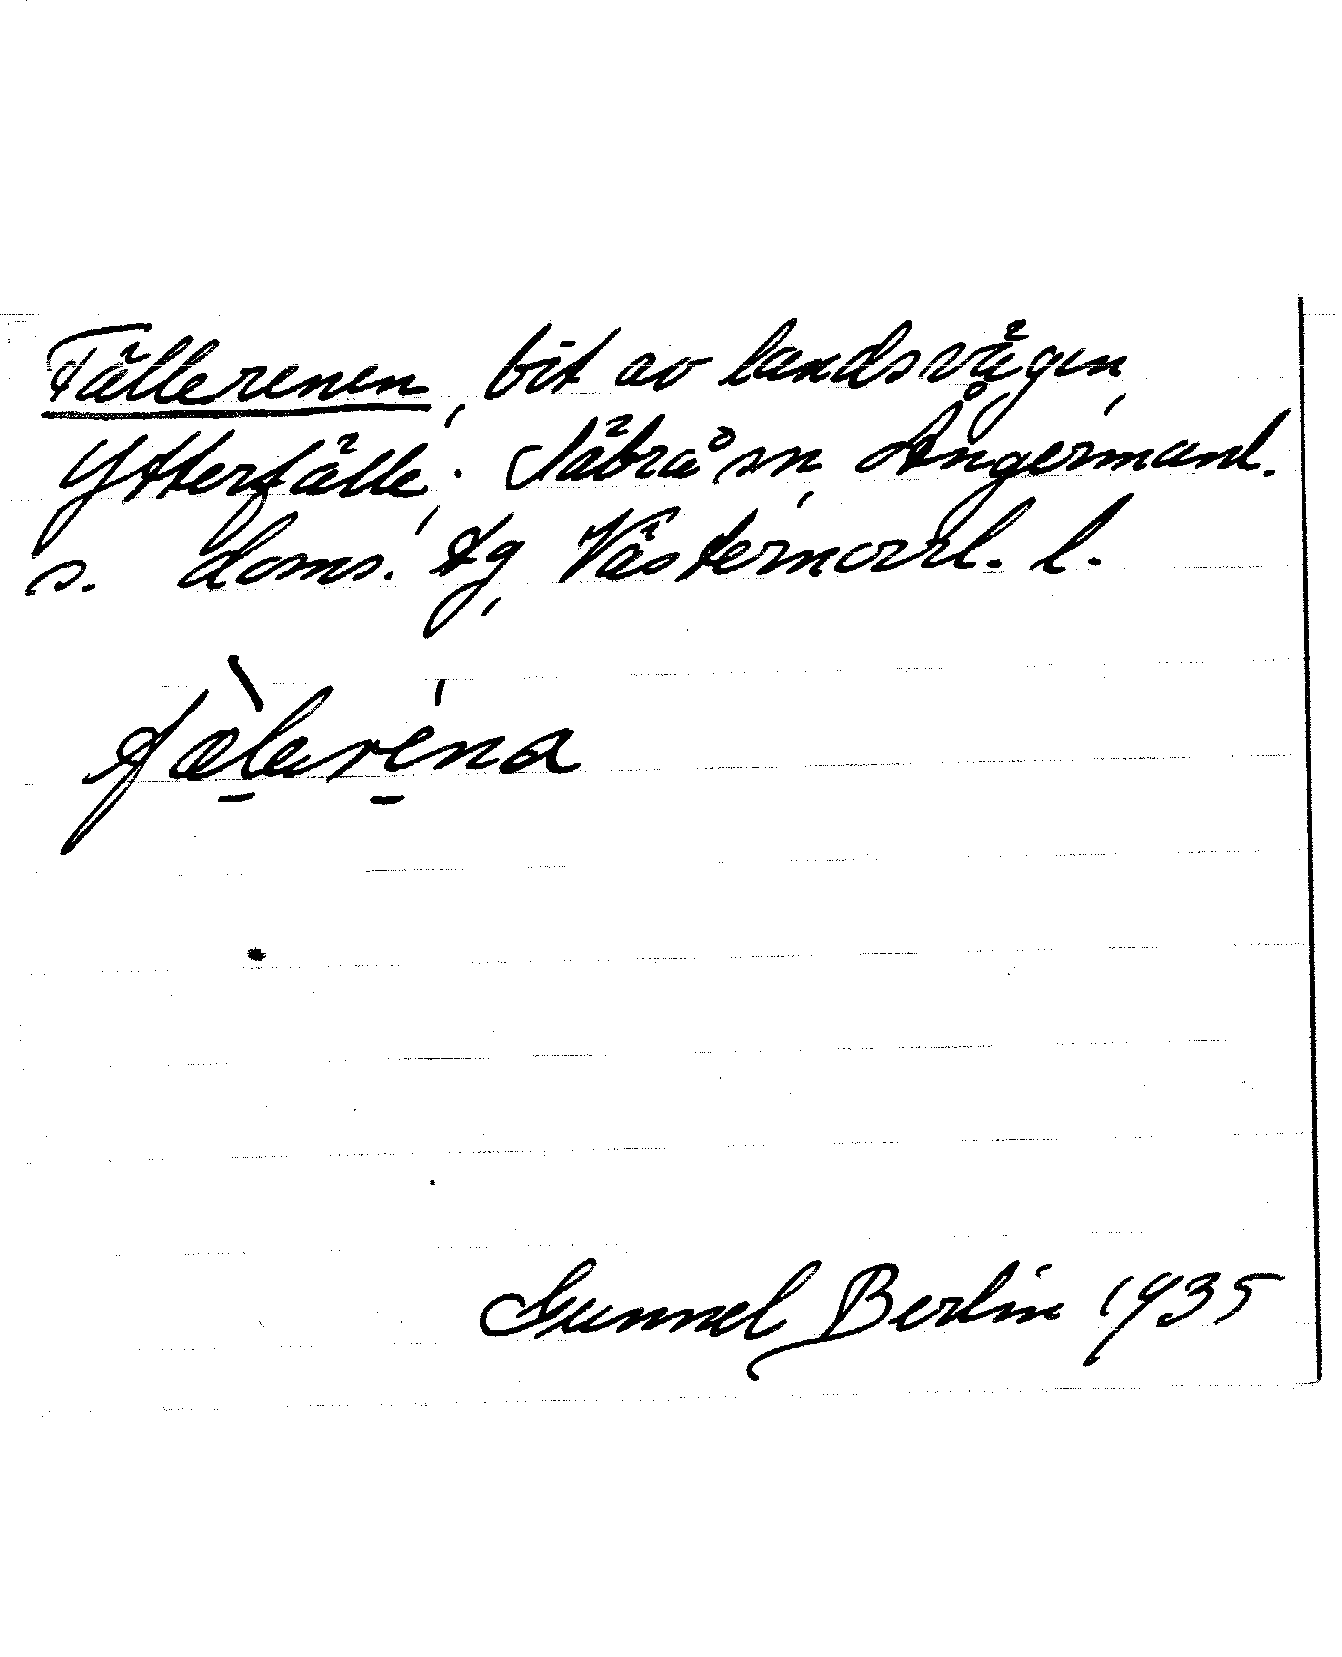 Fällerenen, bit av landsvägen,
Ytterfälle, Näbrå sn, Ångermanl.
s. doms. tg, Västernorrl. l.
fæ̀laréna
Gunnel Berlin 1935